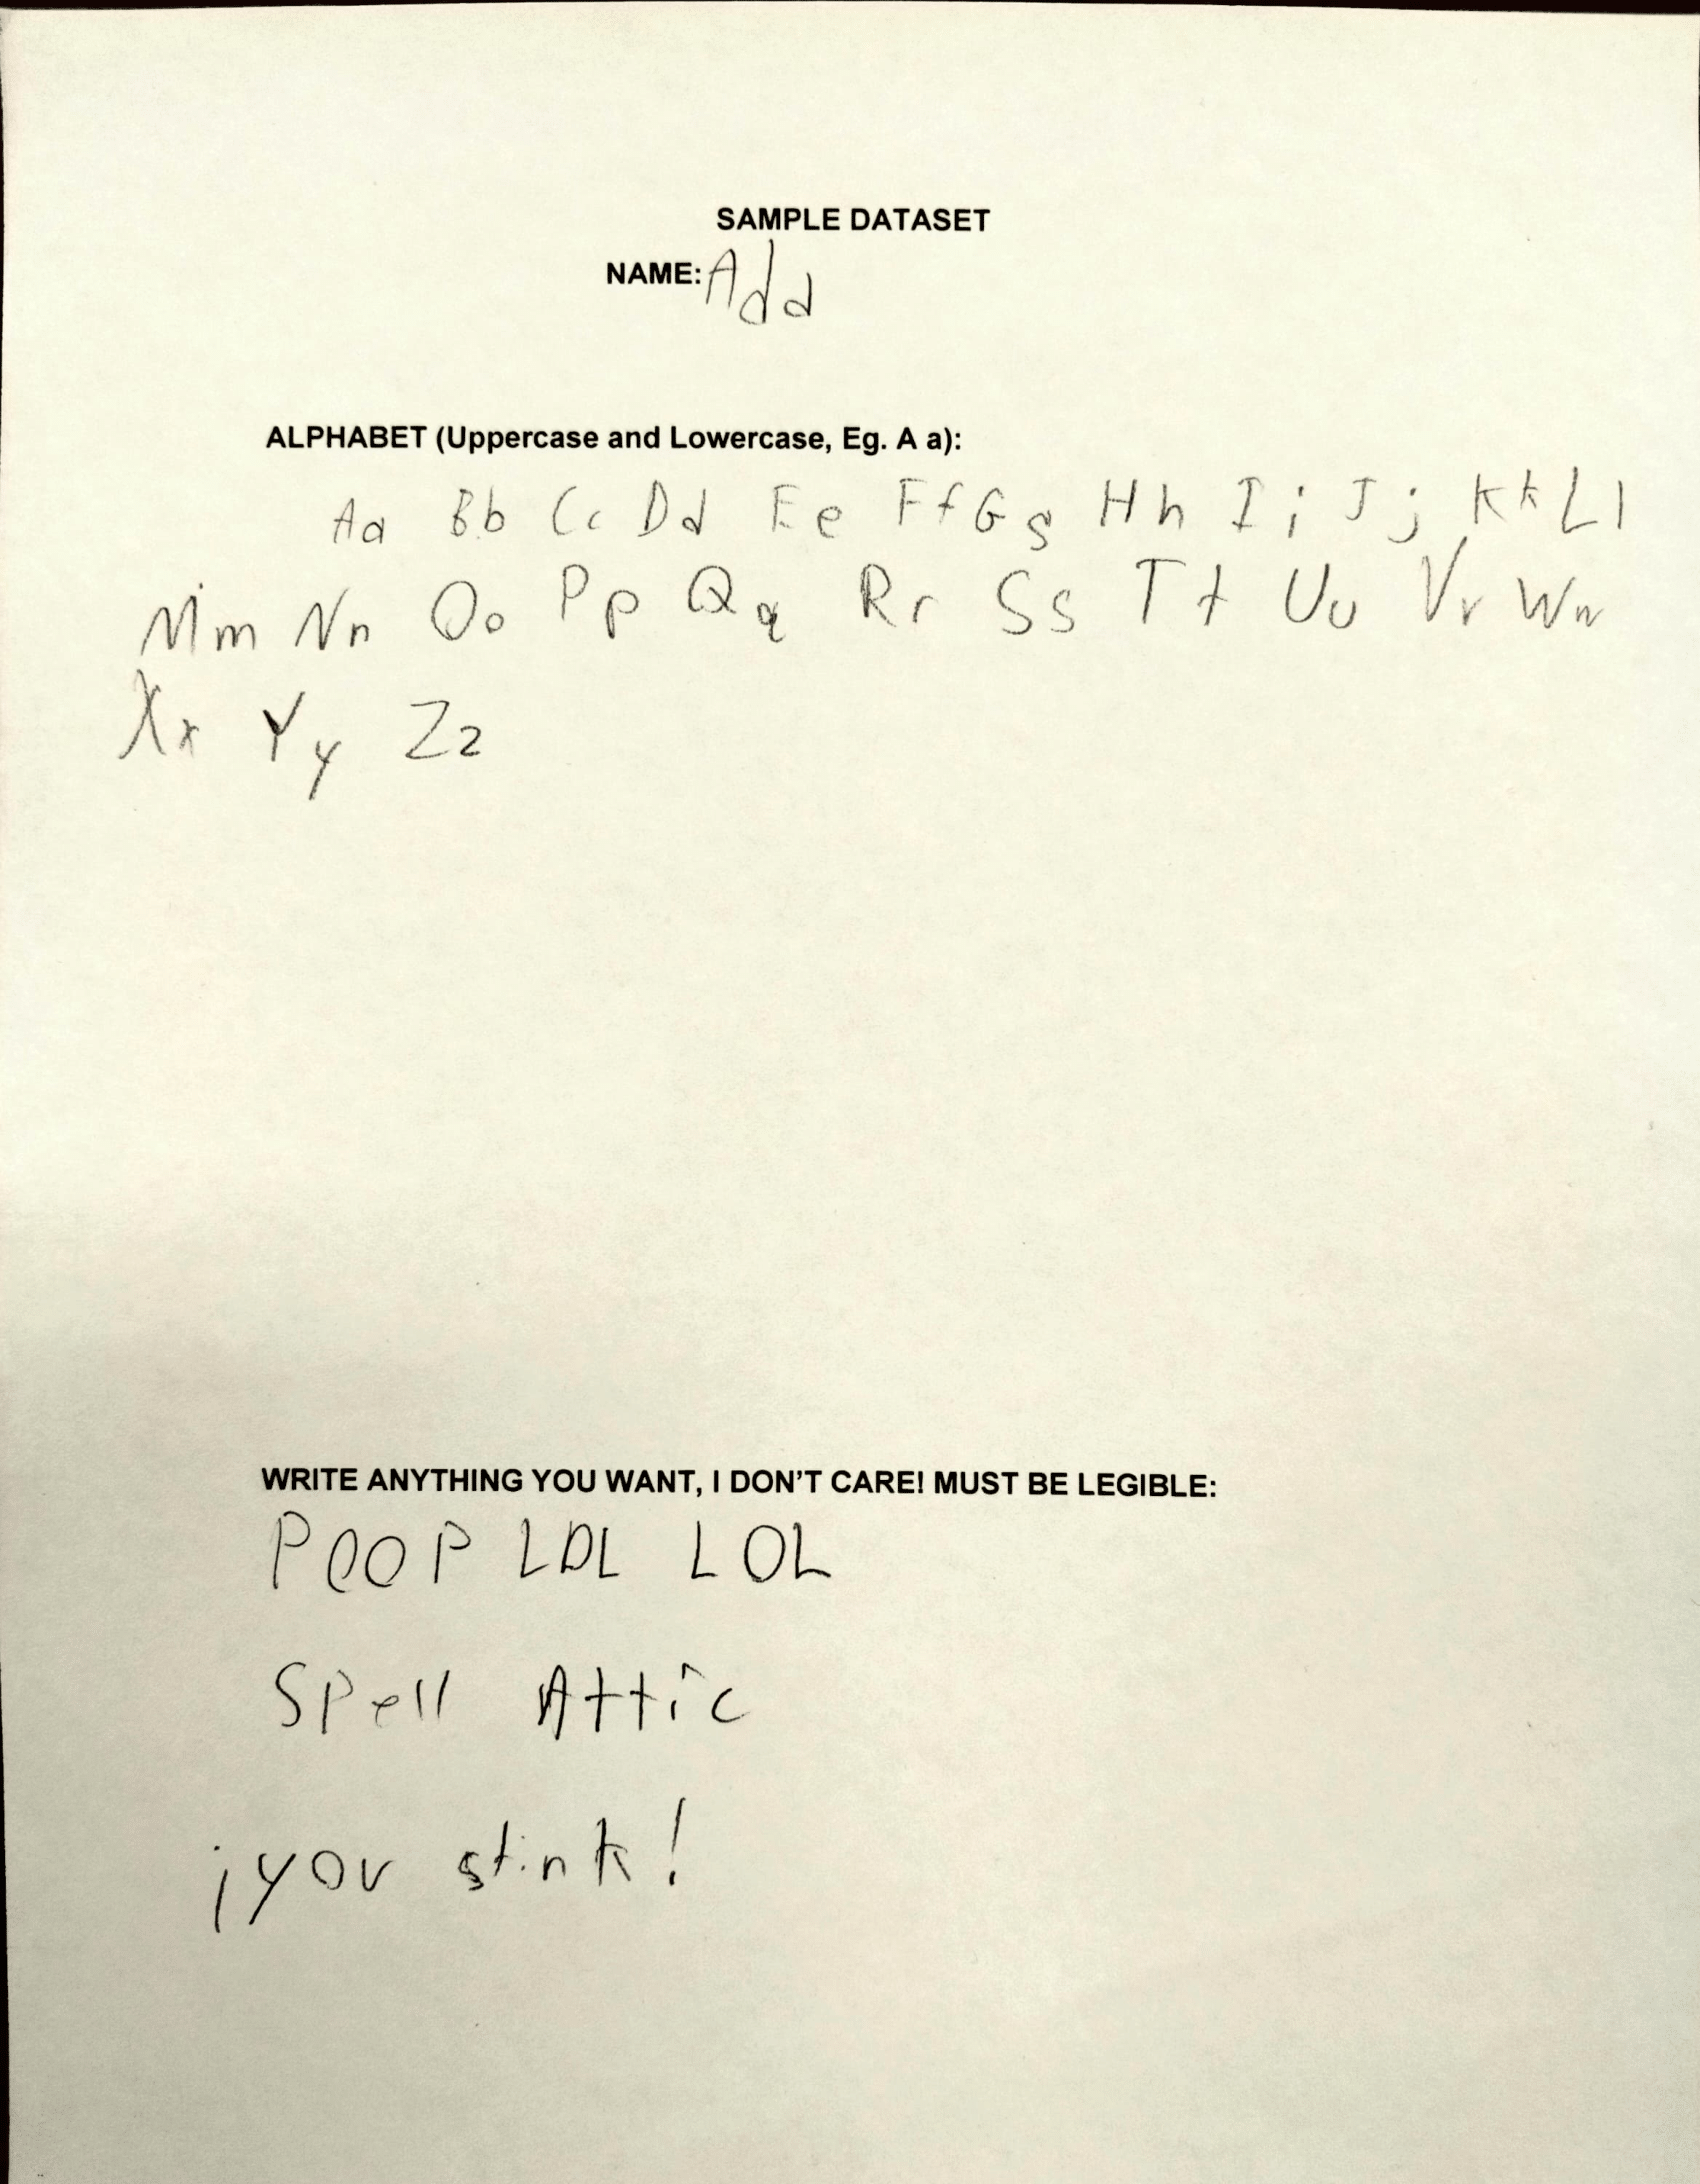 SAMPLE DATASET
NAME: Add
ALPHABET (Uppercase and Lowercase, Eg. A a):
Aa Bb Cc Dd Ee Ff Gg Hh Ii Jj Kk Ll
Mm Nn Oo Pp Qq Rr Ss Tt Uu Vv Ww
Xx Yy Zz
WRITE ANYTHING YOU WANT, I DON'T CARE! MUST BE LEGIBLE:
POOP LOL LOL
Spell Attic
¡you stink!